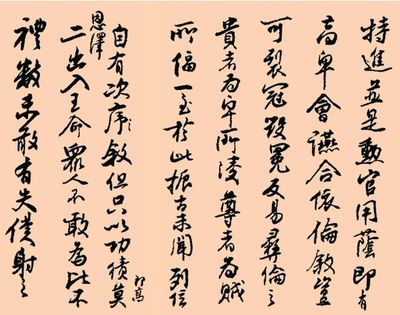 特進並是勳官用蔭即有
高卑會讌合依倫敘豈
可裂冠毀冕反易彝倫
貴者為卑所凌尊者為賊
所偪一至於此振古未聞列位
自有次序敘但只以功績莫
既高
恩澤
二出入王命眾人不敢為比不
禮數未敢有失僕射